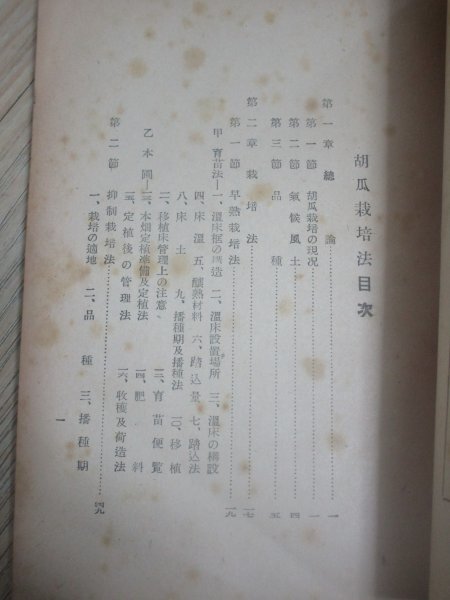 胡瓜栽培法目次
第一章 總論……一
第一節 胡瓜栽培の現況……一
第二節 氣候風土……四
第三節 品種……五
第二章 栽培法……一七
第一節 早熟栽培法……一九
甲 育苗法—一、溫床框の構造 二、溫床設置場所 三、溫床の構設
四、床溫 五、釀熱材料 六、踏込量 七、踏込法
八、床土 九、播種期及播種法 一〇、移植
二、移植床管理上の注意 三、育苗便覽
乙 本圃—一、本畑定植準備及定植法 四、肥料
五、定植後の管理法 六、收穫及荷造法
第二節 抑制栽培法……四九
一、栽培の適地 二、品種 三、播種期
一